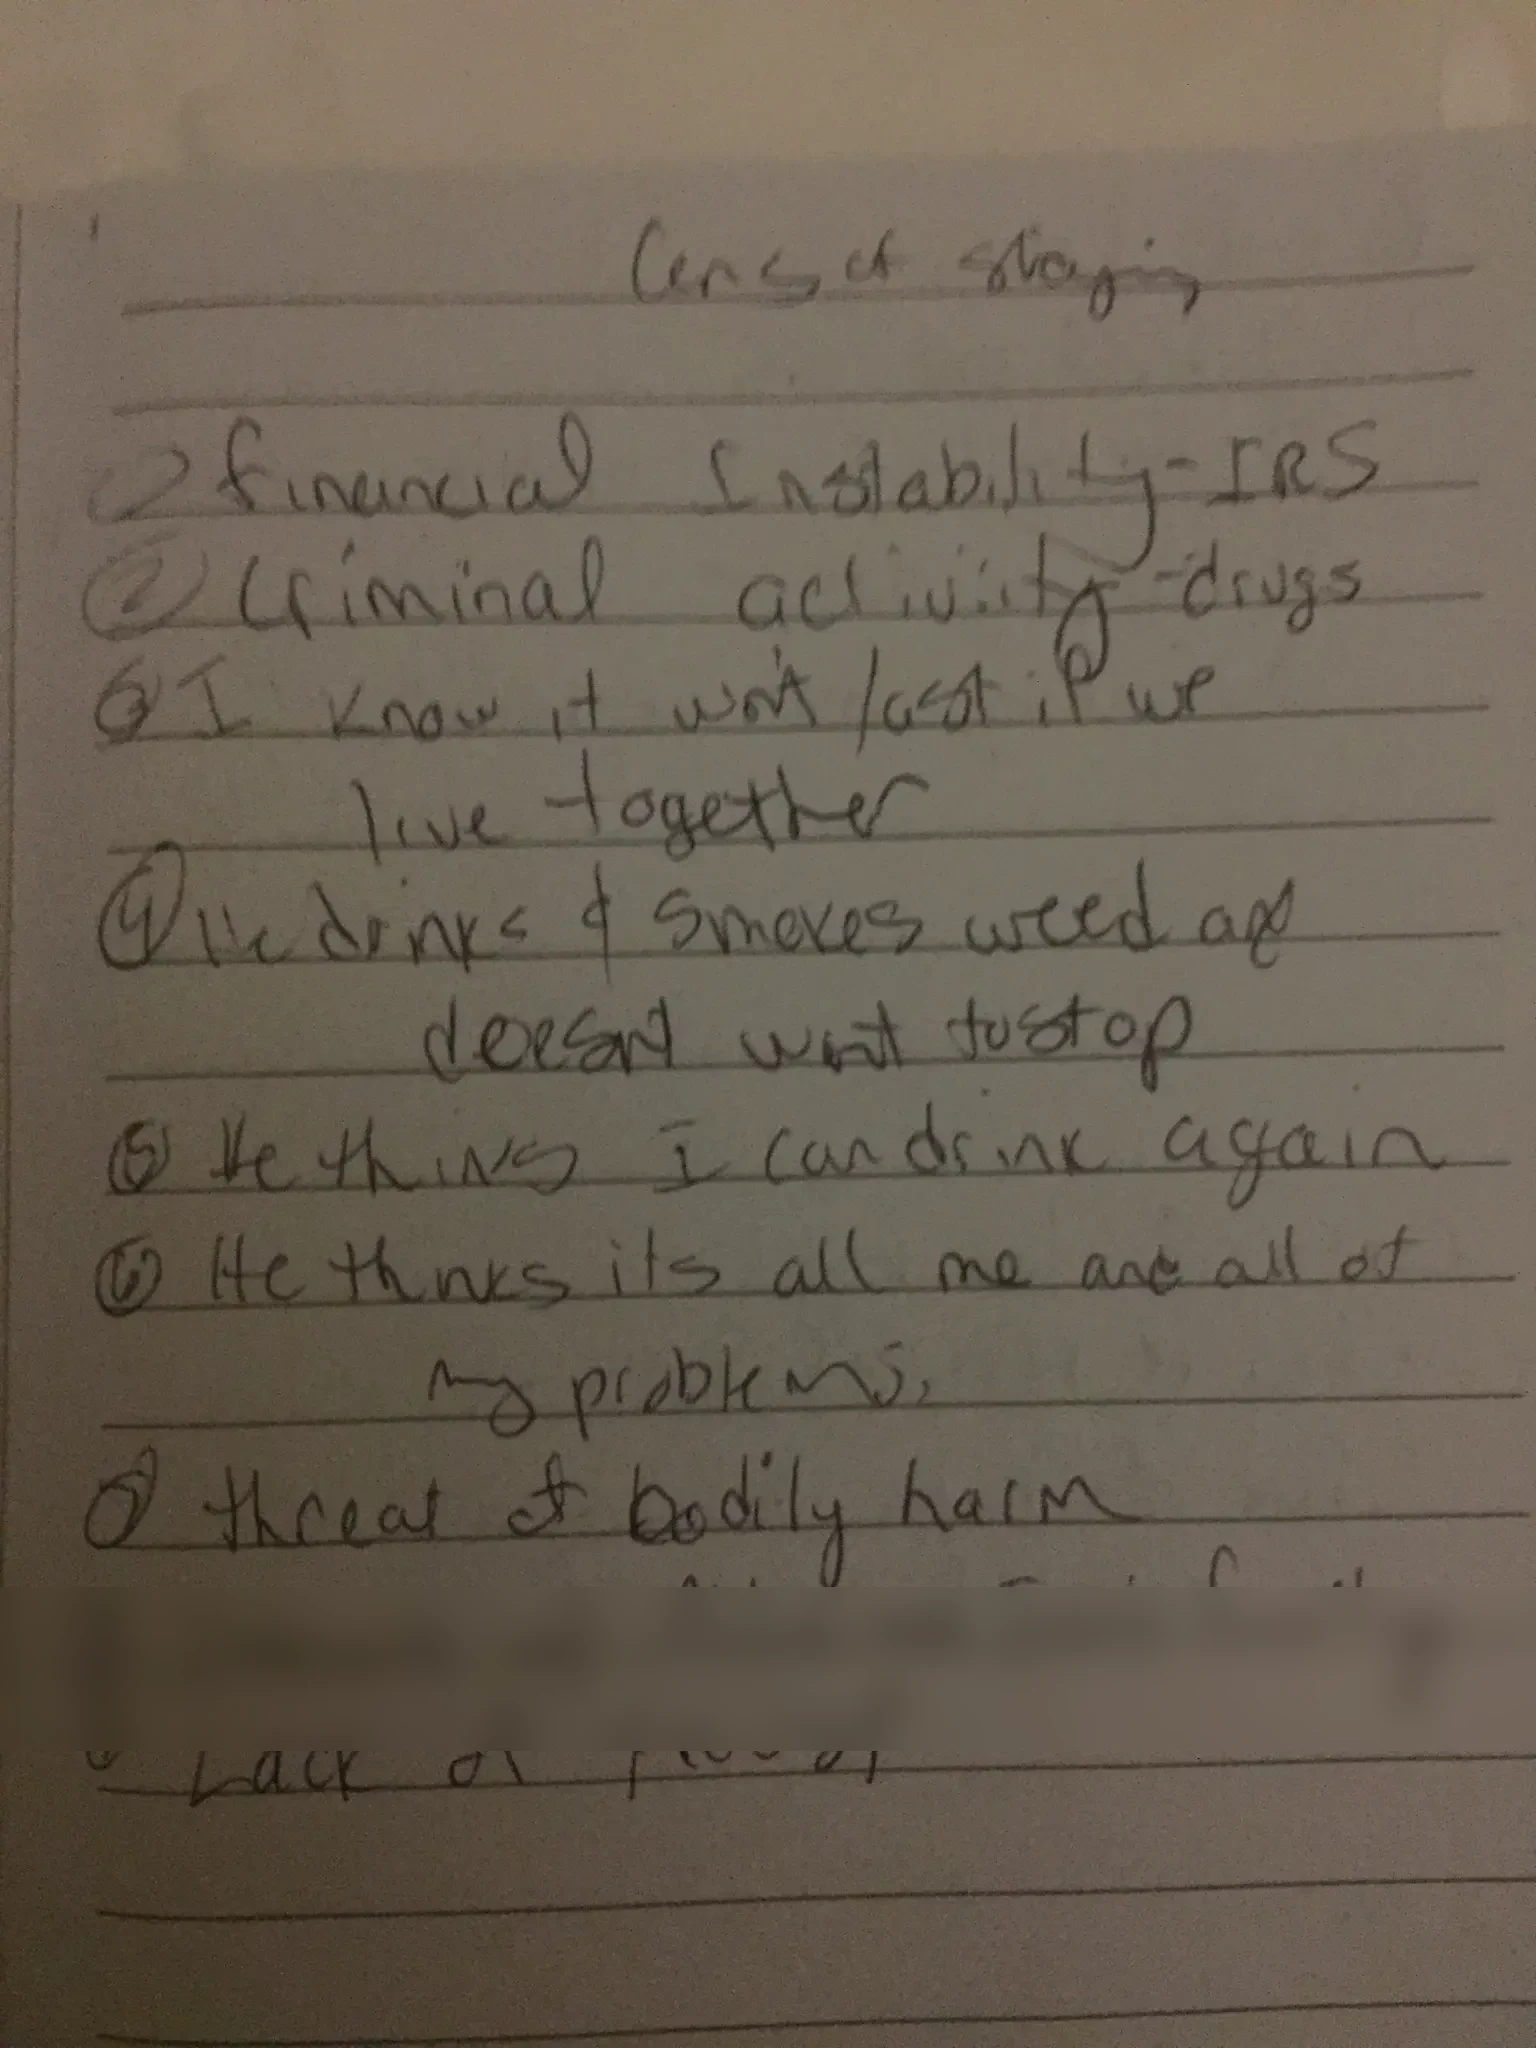 Cons of staying
① Financial Instability - IRS
② Criminal activity - drugs
③ I know it won't last if we
live together
④ He drinks & smokes weed and
doesn't want to stop
⑤ He thinks I can drink again
⑥ He thinks its all me and all of
my problems.
⑦ threat of bodily harm
Lack of